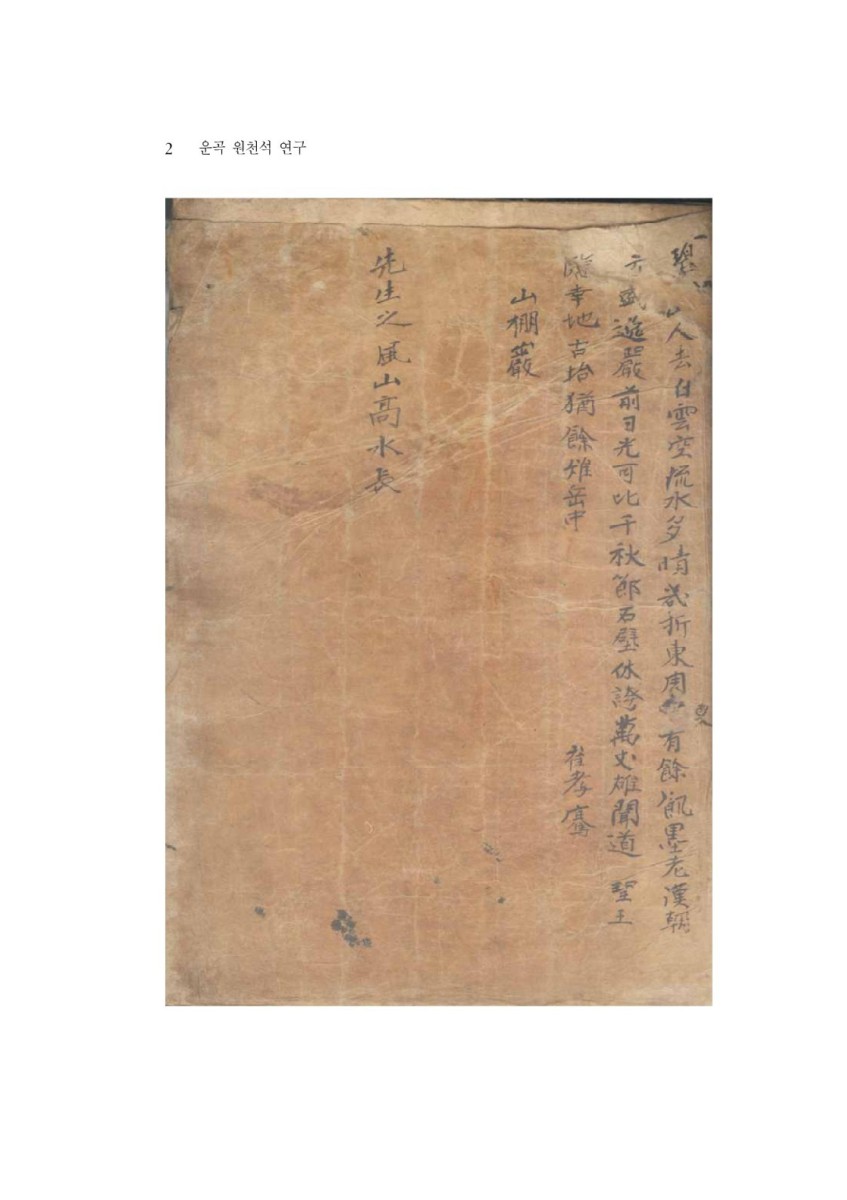 2 운곡 원천석 연구
人去白雲空流水多情 折東周 有餘 墨老漢朝
巖前日光可比千秋節石壁休誇萬丈雄聞道 聖王
臨幸地古坮猶餘雉岳中 崔孝騫
山棚巖
先生之風山高水長